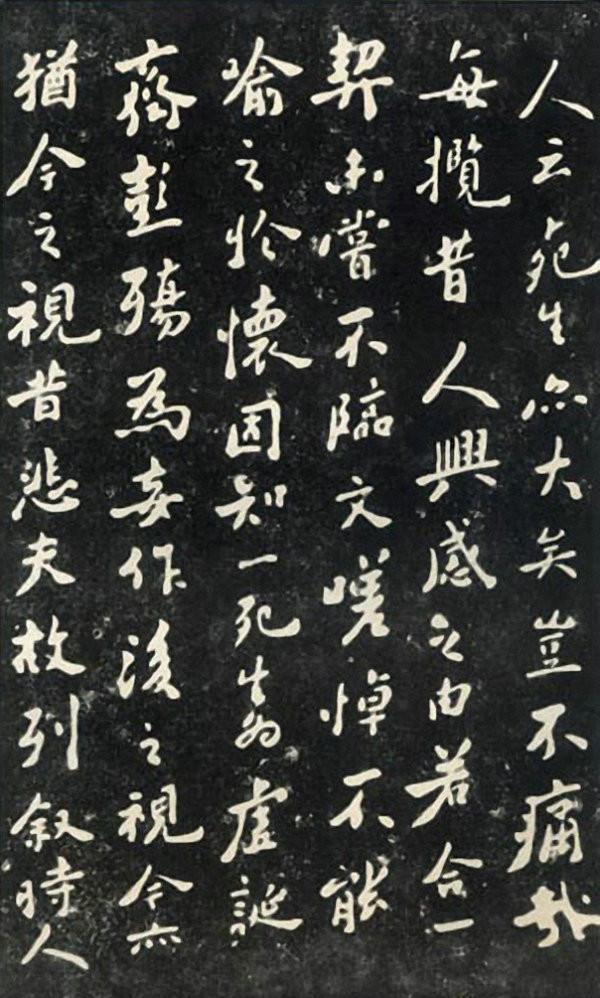 人云死生亦大矣豈不痛哉
每攬昔人興感之由若合一
契未嘗不臨文嗟悼不能
喻之於懷固知一死生為虛誕
齊彭殤為妄作後之視今亦
猶今之視昔悲夫故列叙時人